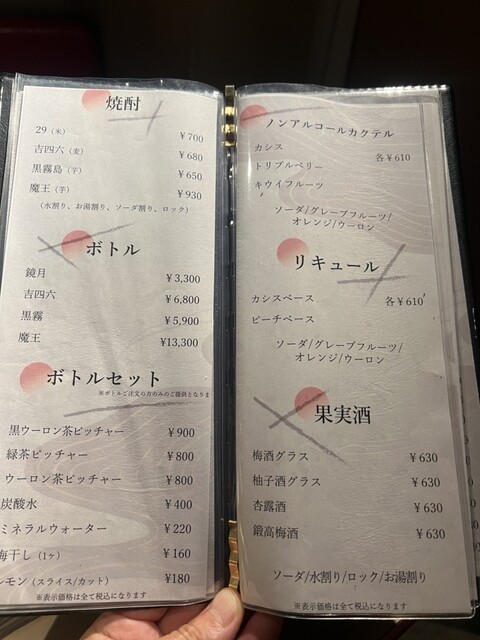 焼酎
29（米） ￥700
吉四六（麦） ￥680
黒霧島（芋） ￥650
魔王（芋） ￥930
（水割り、お湯割り、ソーダ割り、ロック）
ボトル
鏡月 ￥3,300
吉四六 ￥6,800
黒霧 ￥5,900
魔王 ¥13,300
ボトルセット
※ボトルご注文の方のみのご提供となりま
黒ウーロン茶ピッチャー ￥900
緑茶ピッチャー ￥800
ウーロン茶ピッチャー ￥800
炭酸水 ￥400
ミネラルウォーター ￥220
梅干し（1ヶ） ￥160
レモン（スライス/カット） ¥180
※表示価格は全て税込になります
ノンアルコールカクテル
カシス
トリプルベリー 各￥610
キウイフルーツ
ソーダ/グレープフルーツ/
オレンジ/ウーロン
リキュール
カシスベース 各￥610
ピーチベース
ソーダ/グレープフルーツ/
オレンジ/ウーロン
果実酒
梅酒グラス ￥630
柚子酒グラス ￥630
杏露酒 ￥630
鍛高梅酒 ￥630
ソーダ/水割り/ロック/お湯割り
※表示価格は全て税込になります